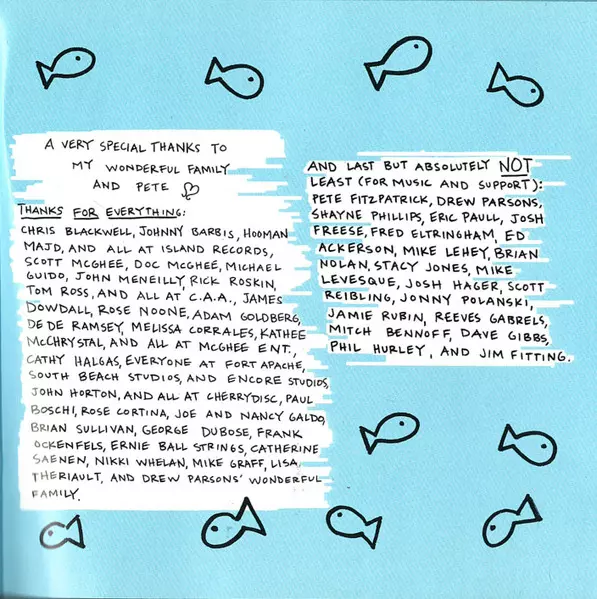 A VERY SPECIAL THANKS TO
MY WONDERFUL FAMILY
AND PETE
THANKS FOR EVERYTHING:
CHRIS BLACKWELL, JOHNNY BARBIS, HOOMAN
MAJD, AND ALL AT ISLAND RECORDS,
SCOTT MCGHEE, DOC MCGHEE, MICHAEL
GUIDO, JOHN MENEILLY, RICK ROSKIN,
TOM ROSS, AND ALL AT C.A.A., JAMES
DOWDALL, ROSE NOONE, ADAM GOLDBERG,
DE DE RAMSEY, MELISSA CORRALES, KATHEE
MCCHRYSTAL, AND ALL AT MCGHEE ENT.,
CATHY HALGAS, EVERYONE AT FORT APACHE,
SOUTH BEACH STUDIOS, AND ENCORE STUDIOS,
JOHN HORTON, AND ALL AT CHERRYDISC, PAUL
BOSCHI, ROSE CORTINA, JOE AND NANCY GALDO,
BRIAN SULLIVAN, GEORGE DUBOSE, FRANK
OCKENFELS, ERNIE BALL STRINGS, CATHERINE
SAENEN, NIKKI WHELAN, MIKE GRAFF, LISA
THERIAULT, AND DREW PARSONS' WONDERFUL
FAMILY.
AND LAST BUT ABSOLUTELY NOT
LEAST (FOR MUSIC AND SUPPORT):
PETE FITZPATRICK, DREW PARSONS,
SHAYNE PHILLIPS, ERIC PAULL, JOSH
FREESE, FRED ELTRINGHAM, ED
ACKERSON, MIKE LEHEY, BRIAN
NOLAN, STACY JONES, MIKE
LEVESQUE, JOSH HAGER, SCOTT
REIBLING, JONNY POLANSKI,
JAMIE RUBIN, REEVES GABRELS,
MITCH BENNOFF, DAVE GIBBS,
PHIL HURLEY, AND JIM FITTING.